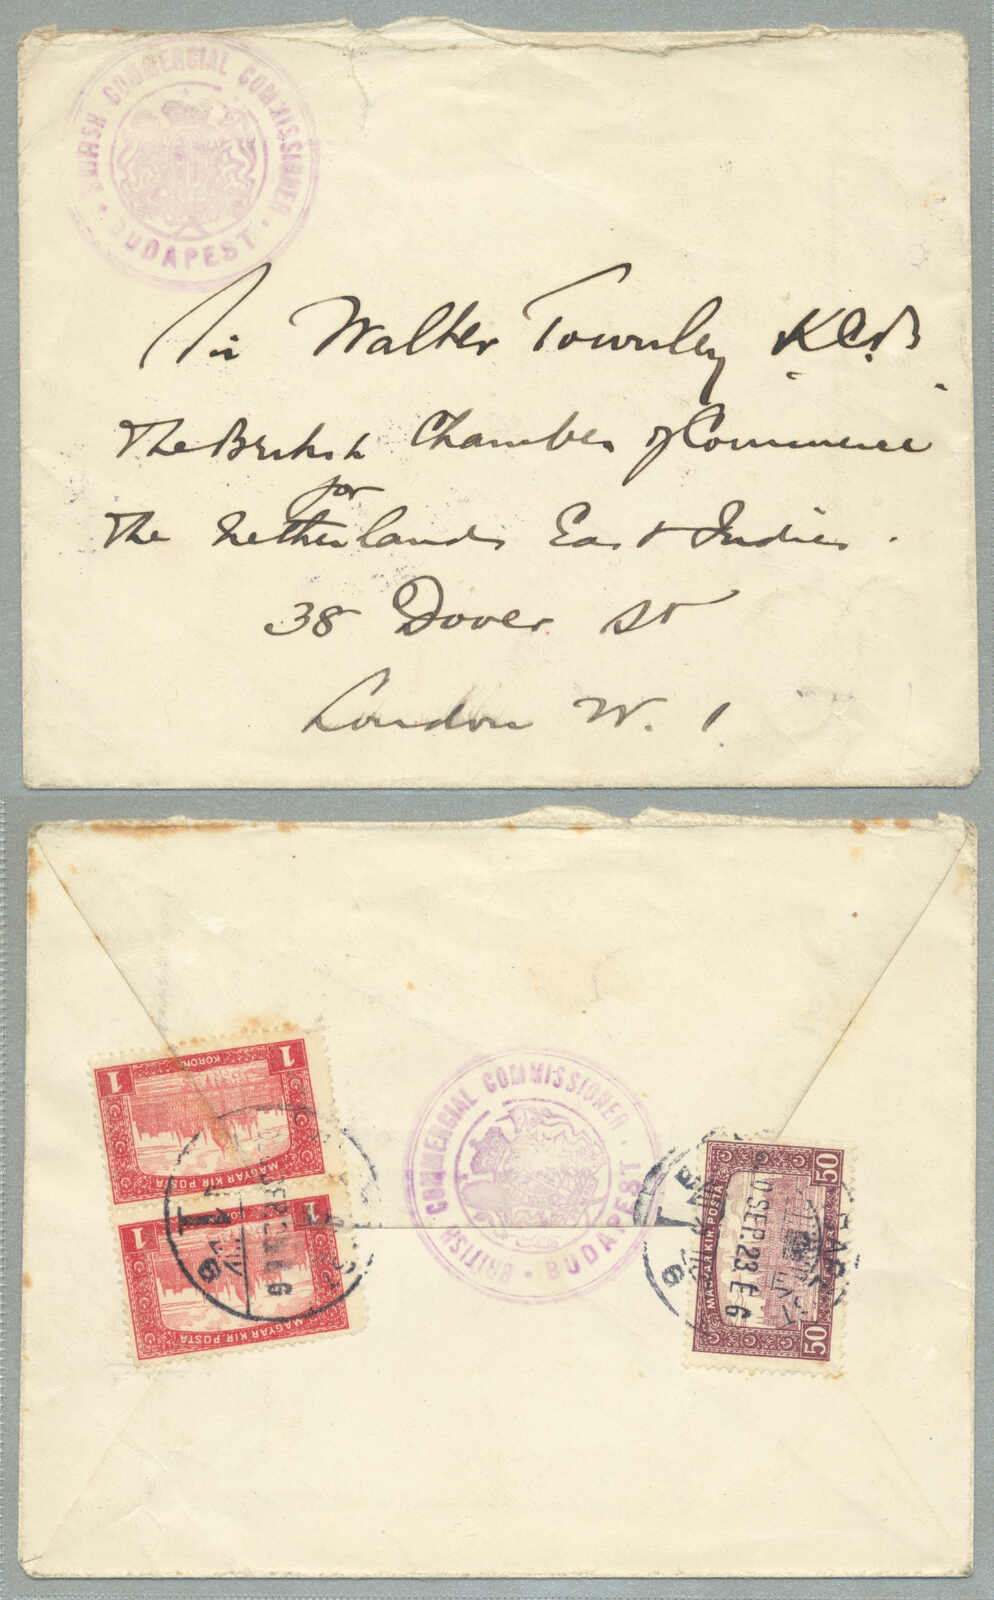 BRITISH COMMERCIAL COMMISSIONER
· BUDAPEST ·
Sir Walter Townley K.C.B.
The British Chamber of Commerce
for
The Netherlands East Indies.
38 Dover St
London W. 1
1 KORONA 1
MAGYAR KIR. POSTA
1 KORONA 1
MAGYAR KIR. POSTA
BRITISH COMMERCIAL COMMISSIONER
· BUDAPEST ·
50 50
MAGYAR KIR. POSTA
SEP. 23 E 6